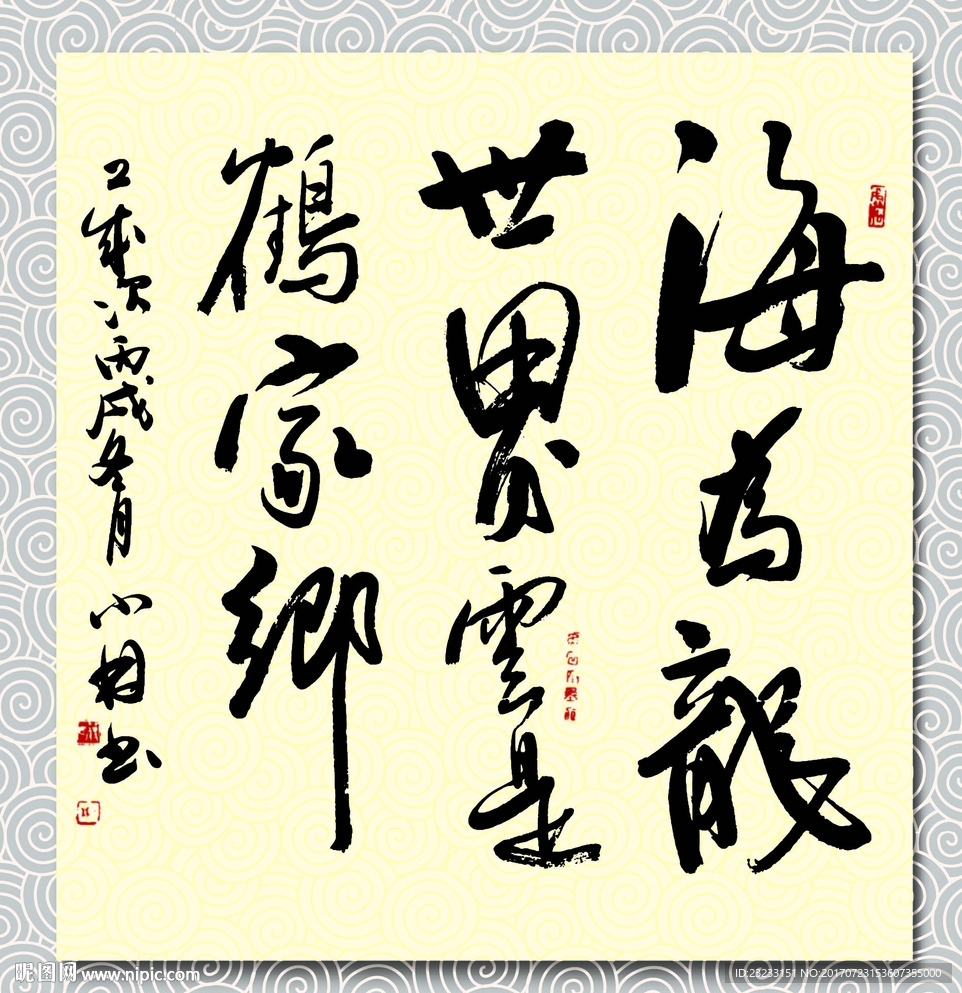 海为龍
世界雲是
鶴家鄉
歲次丙戌冬月
小
书
昵图网 www.nipic.com
ID:23233151 NO:20170723153607355000